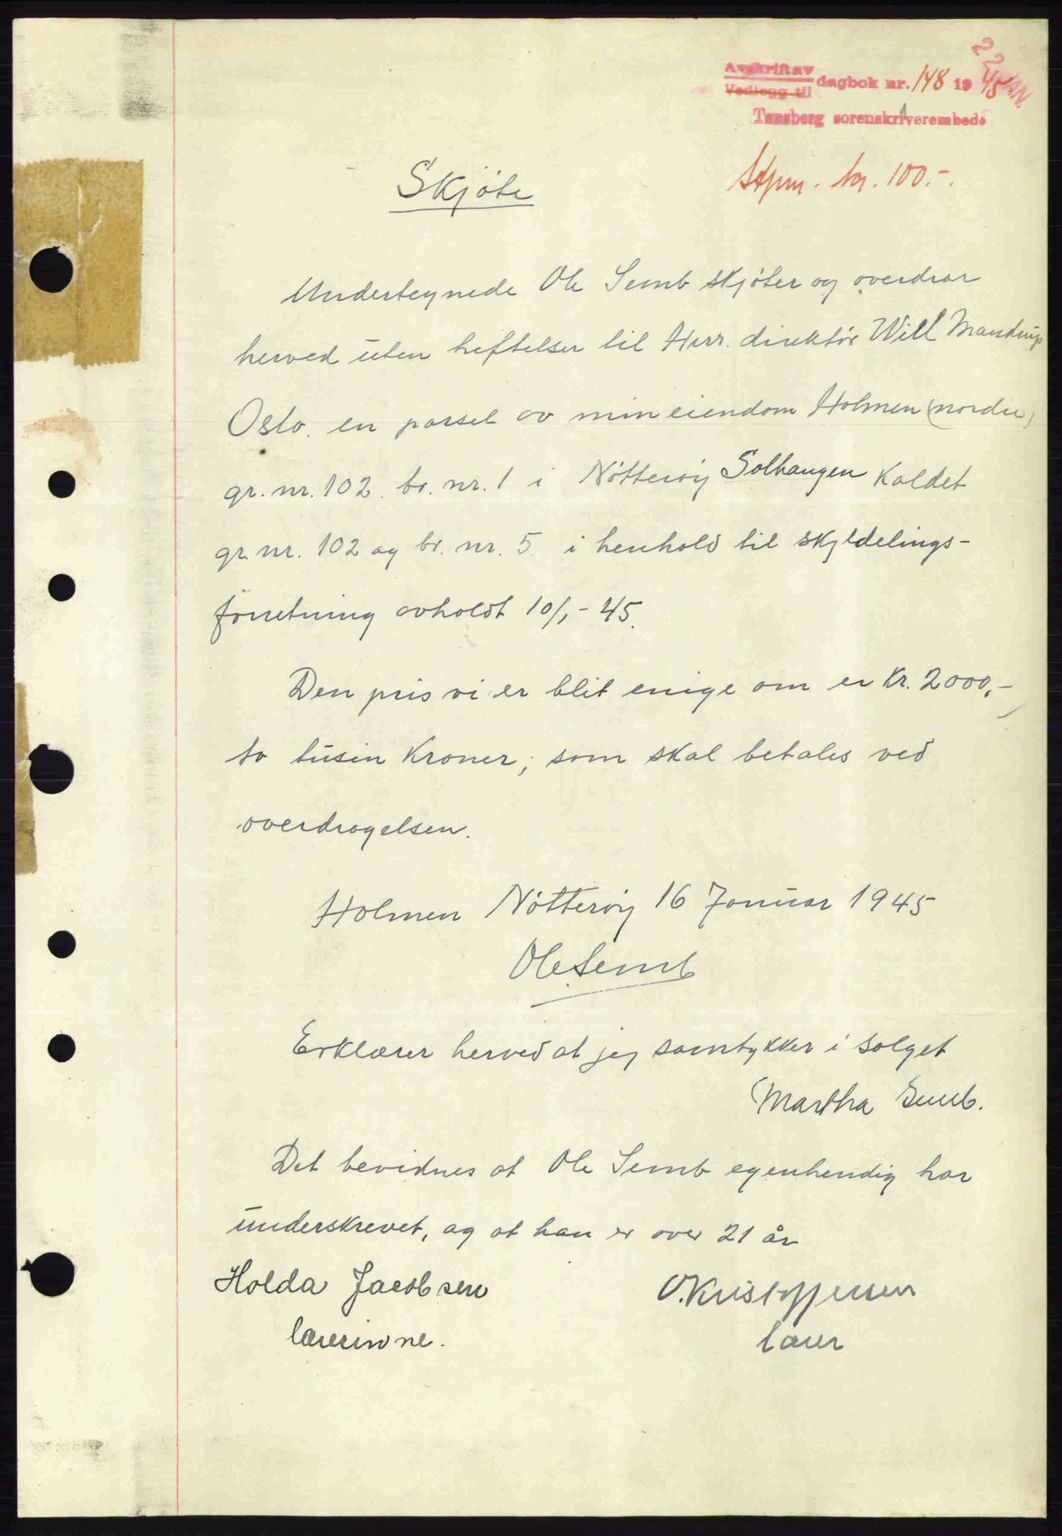 Avskrift av
Vedlegg til dagbok nr. 148 19 45
22 JAN.
Tønsberg sorenskriverembede
Stpm. kr. 100.-.
Skjøte
Undertegnede Ole Semb skjøter og overdrar
herved uten heftelser til Herr. direktør Will Mandrup
Oslo. en parsel av min eiendom Holmen (nordre)
gr. nr. 102. br. nr. 1 i Nøtterøy Solhaugen Kaldet
gr. nr. 102 og br. nr. 5. i henhold til skyldelings-
forretning avholdt 10/1-45.
Den pris vi er blit enige om er Kr. 2000,-
to tusin Kroner, som skal betales ved
overdragelsen.
Holmen Nøtterøy 16 Januar 1945
Ole Semb
Erklærer herved at jeg samtykker i Salget
Martha Semb.
Det bevidnes at Ole Semb egenhendig har
underskrevet, og at han er over 21 år
Holda Jacobsen O. Kristoffersen
lærerinne. lærer